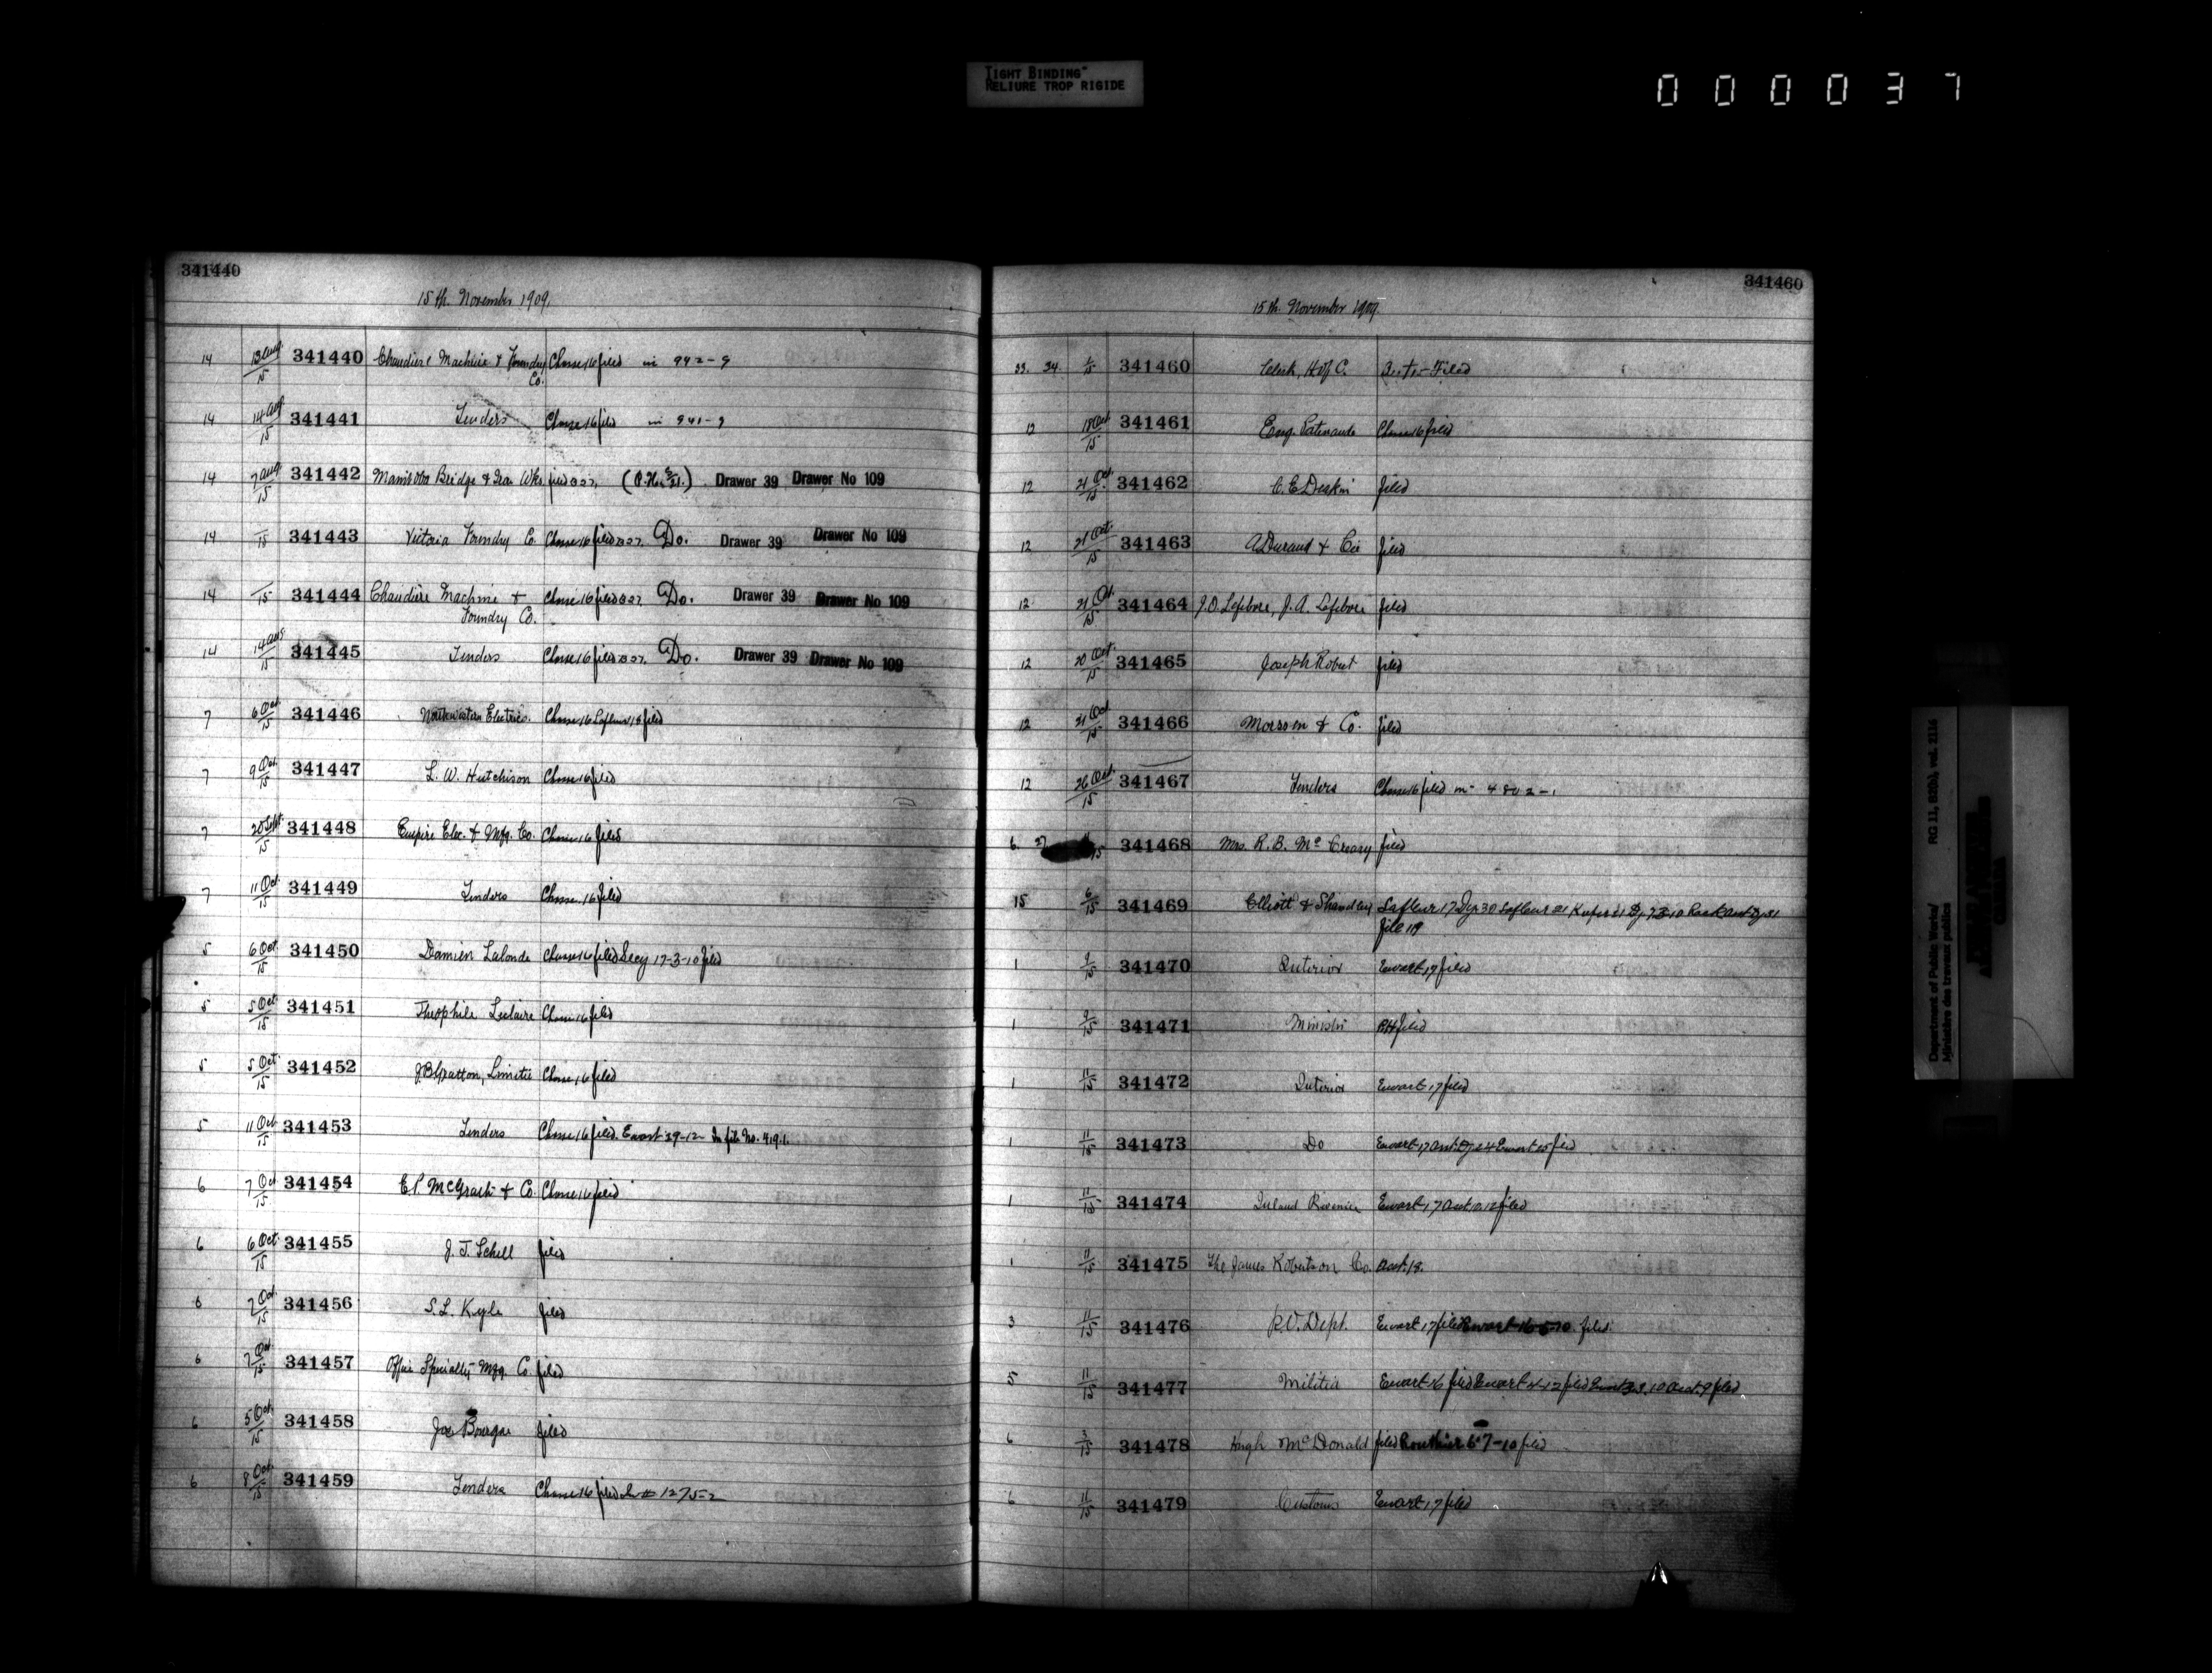 TIGHT BINDING"
RELIURE TROP RIGIDE
000037
341440
15th. November 1909.
14 13 Aug/15 341440 Chaudiere Machine & Foundry Chase 16 filed in 942-9
Co.
14 14 Aug/15 341441 Tenders Chase 16 filed in 941-9
14 7 Aug/15 341442 Manitoba Bridge & Iron Wks filed Drawer 39 Drawer No 109
14 /15 341443 Victoria Foundry Co. Chase 16 filed Do. Drawer 39 Drawer No 109
14 /15 341444 Chaudiere Machine & Chase 16 filed Do. Drawer 39 Drawer No 109
Foundry Co.
14 14 Aug/15 341445 Tenders Chase 16 filed Do. Drawer 39 Drawer No 109
7 6 Oct/15 341446 Northwestern Electric Co. Chase 16 Lafleur 18 filed
7 9 Oct/15 341447 L. W. Hutchison Chase 16 filed
7 20 Sept/15 341448 Empire Elec. & Mfg. Co. Chase 16 filed
7 11 Oct/15 341449 Tenders Chase 16 filed
5 6 Oct/15 341450 Damien Lalonde Chase 16 filed Secy 17-3-10 filed
5 5 Oct/15 341451 Theophile Leclaire Chase 16 filed
5 5 Oct/15 341452 J B Gratton, Limitee Chase 16 filed
5 11 Oct/15 341453 Tenders Chase 16 filed. Ewart 29-12 In file No. 419.1.
6 7 Oct/15 341454 E P. McGrath & Co. Chase 16 filed
6 6 Oct/15 341455 J. T. Schell filed
6 7 Oct/15 341456 S. L. Kyle filed
6 7 Oct/15 341457 Office Specialty Mfg. Co filed
6 5 Oct/15 341458 Joe Bourque filed
6 8 Oct/15 341459 Tenders Chase 16 filed In # 1275-2
341460
15th. November 1909.
33. 34. /15 341460 Clerk, H of C. Filed
12 18 Oct/15 341461 Eug. Patenaude Chase 16 filed
12 21 Oct/15 341462 C. E Deakin filed
12 21 Oct/15 341463 A Durand & Cie filed
12 21 Oct/15 341464 J. O. Lefebvre, J. A. Lefebvre filed
12 20 Oct/15 341465 Joseph Robert filed
12 21 Oct/15 341466 Morson & Co. filed
12 26 Oct/15 341467 Tenders Chase 16 filed in 4802-1
6. 27 /15 341468 Mrs. R. B. McCreary filed
15 6/15 341469 Elliott & Lafleur 17 Dep 30 Lafleur
file 119
1 9/15 341470 Interior Ewart 17 filed
1 9/15 341471 Minister RH filed
1 11/15 341472 Interior Ewart 17 filed
1 11/15 341473 Do Ewart 17 Ewart 25 filed
1 11/15 341474 Inland Revenue Ewart 17 filed
1 11/15 341475 The James Robertson Co. Acct. 18.
3 11/15 341476 P.O. Dept. Ewart 17 filed Ewart 16-5-10 filed.
5 11/15 341477 Militia Ewart 16 filed Ewart 4-12 filed Acct. 9 filed
6 3/15 341478 Hugh McDonald filed Routhier 6-7-10 filed
6 11/15 341479 Customs Ewart 17 filed
Department of Public Works/
Ministère des travaux publics
RG 11, B2(b), vol. 2116